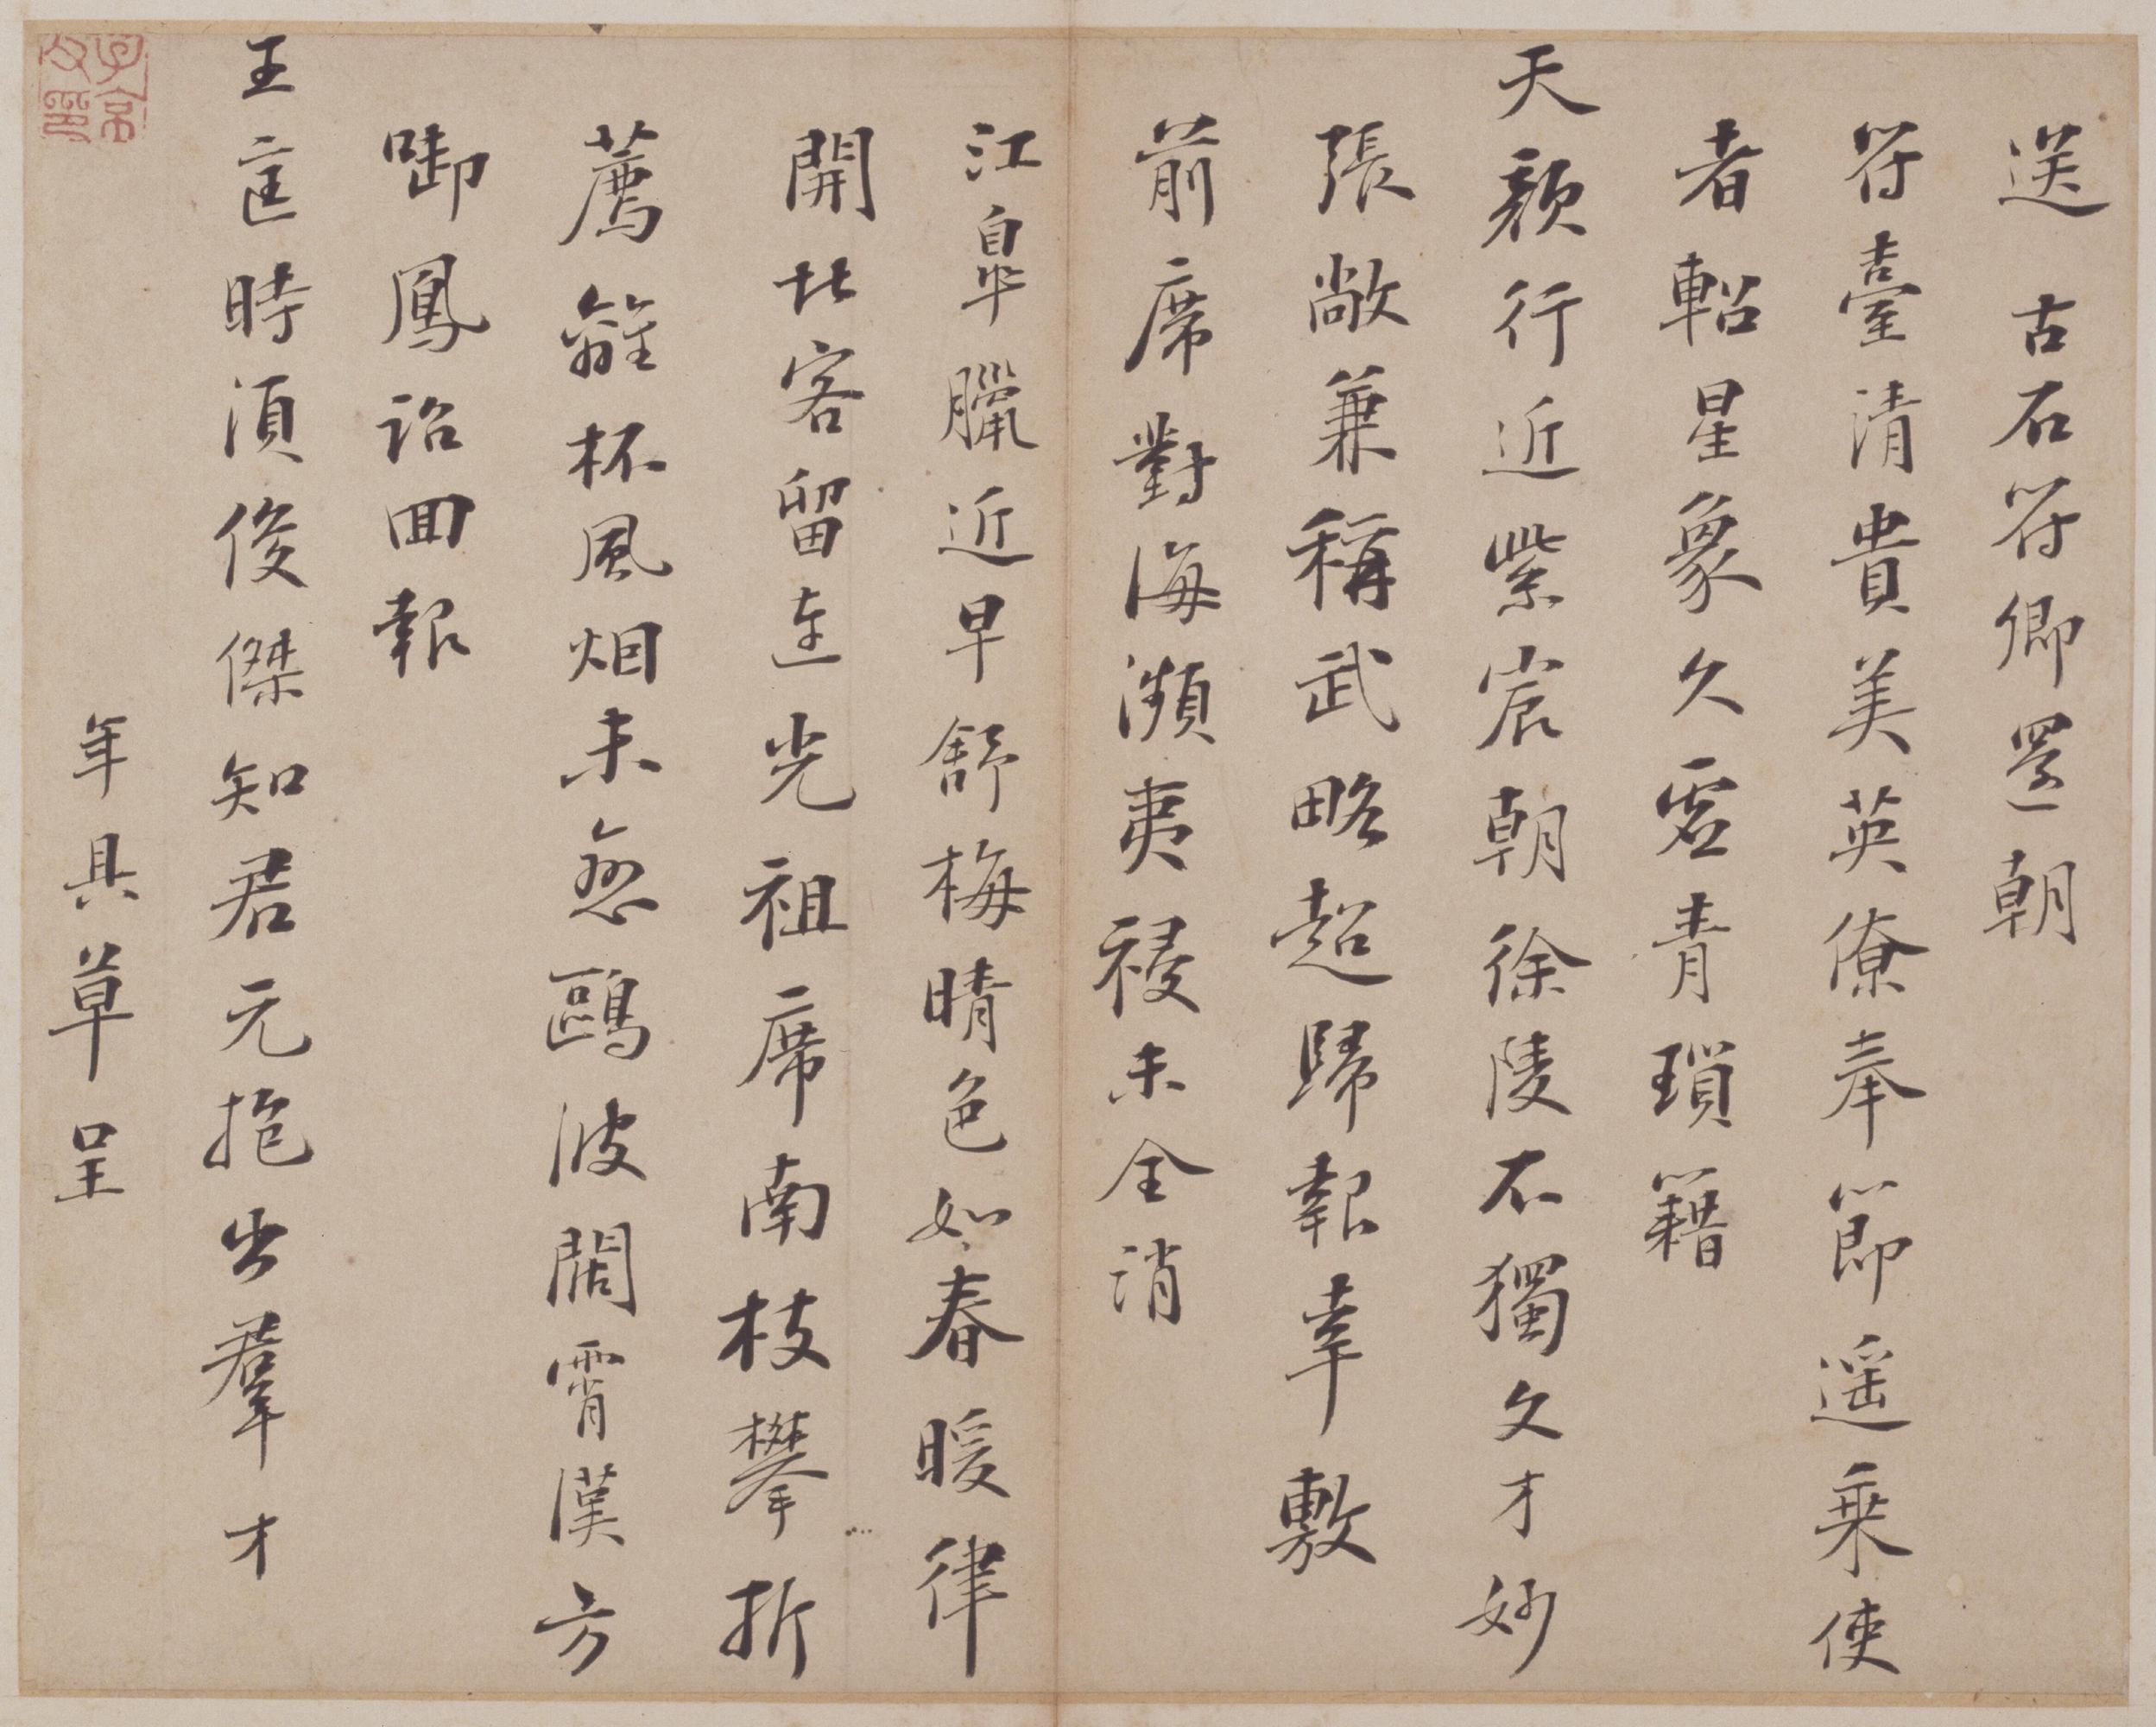 送 古石符卿還朝
符臺清貴美英僚奉節遥乘使
者軺星象久虛青瑣籍
天顏行近紫宸朝徐陵不獨文才妙
張敞兼稱武略超歸報幸敷
前席對海瀕夷祲未全消
江臯臘近早舒梅晴色如春暖律
開北客留連光祖席南枝攀折
薦離杯風烟未愁鷗波闊霄漢方
啣鳳詔回報
王匡時須俊傑知君元抱出羣才
年具草呈